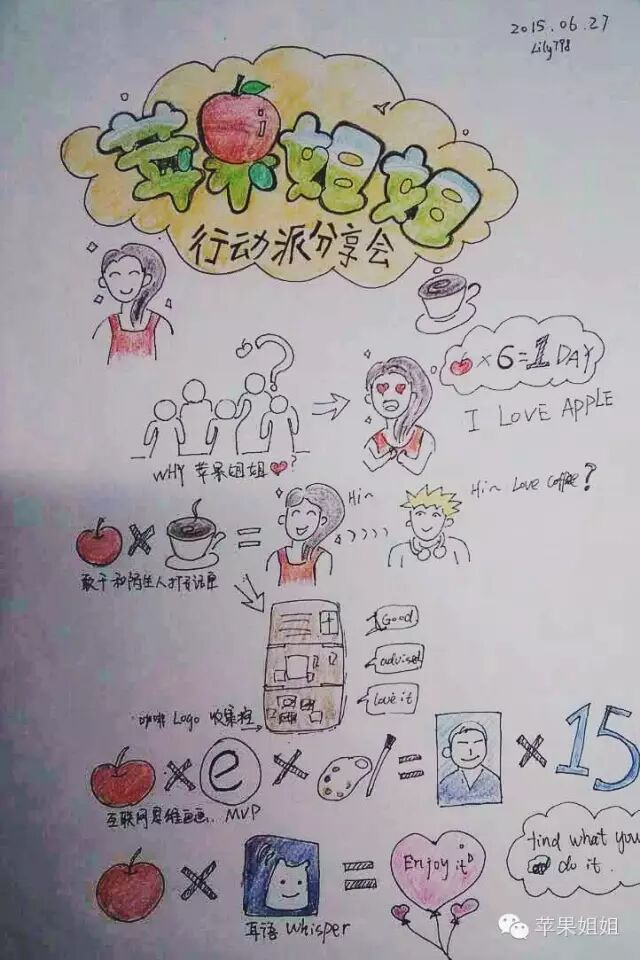 2015.06.27
Lily798
苹果姐姐
行动派分享会
×6=1 DAY
I LOVE APPLE
WHY 苹果姐姐?
Hi~
Hi~ Love coffee?
× =
敢于和陌生人打开话匣
Good
advised
love it
咖啡 Logo 收集控
× e × = × 15
互联网思维画画.. MVP
× =
Enjoy it
find what you
do it.
耳语 Whisper
苹果姐姐